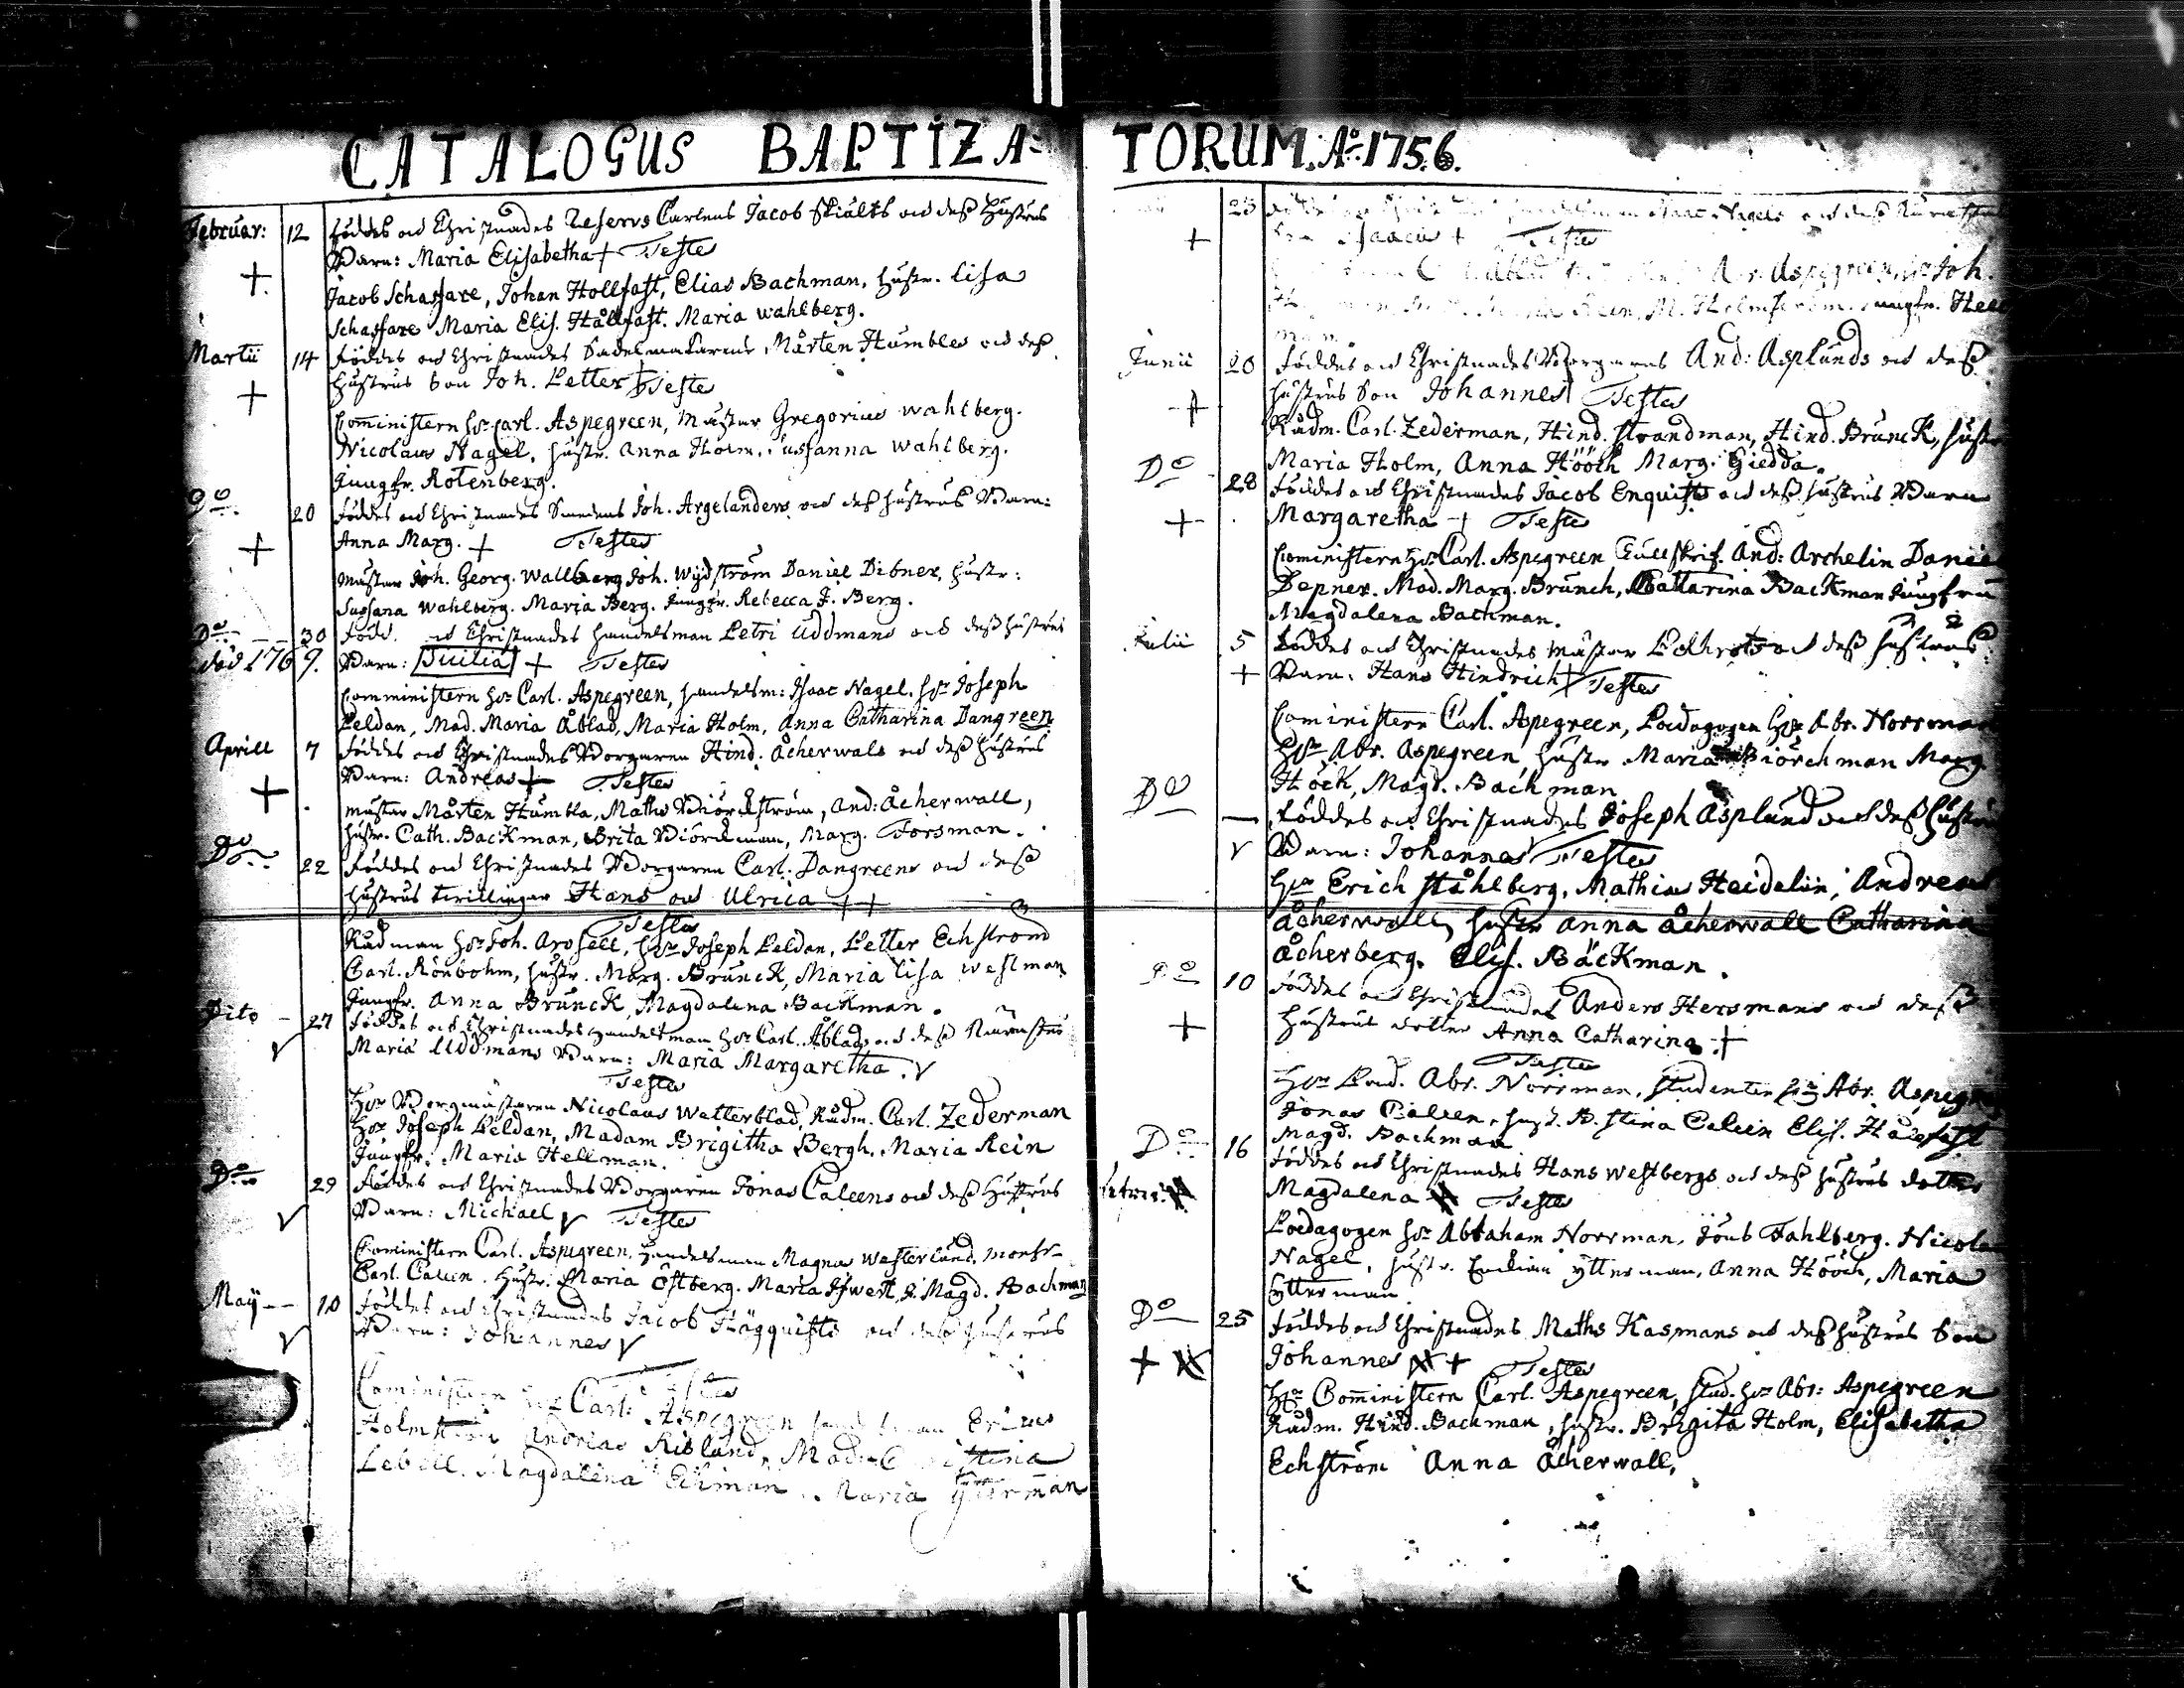 CATALOGUS BAPTIZA=
Februar: 12 föddes och Christnades Reservs Carlens Jacob Skiälts och deß Hustrus
Barn: Maria Elisabetha + Testes
Jacob Schaffare, Johan Hollfast, Elias Bachman, Hustr. Lisa
Schaffare Maria Elis. Hållfast. Maria Wahlberg.
Martii 14 föddes och Christnades Sadelmakarens Mårten Humbles och deß
Hustrus Son Joh. Petter + Testes
Cominister Hr Carl. Aspegreen, Mäster Gregorius Wahlberg.
Nicolaus Nagel, Hustr. Anna Holm. Susanna Wahlberg.
Jungfr. Rotenberg.
Do 20 föddes och Christnades Smedens Joh. Argelanders och deß Hustrus Barn:
Anna Marg. + Testes
Mäster Joh. Georg. Wallberg Joh. Wydström Daniel Dibner, Hustr:
Susana Wahlberg. Maria Berg. Jungfr. Rebecca J. Berg.
Do 30 född. och Christnades Handelsman Petri Uddmans och deß Hustrus
död 1769. Barn: Sicilia + Testes
Comministern Hr Carl. Aspegreen, Handelsm: Isaac Nagel. Hr Joseph
Peldan, Mad. Maria Åblad, Maria Holm, Anna Catharina Dangreen
Aprill 7 föddes och Christnades Borgaren Hind. Åcherwals och deß Hustrus
Barn: Andreas + Testes
Mäster Mårten Humbla, Maths Biörckström, And: Åcherwall,
Hustr. Cath. Backman, Brita Biörckman, Marg. Forsman.
Do 22 föddes och Christnades Borgaren Carl. Dangreens och deß
Hustrus twillingar Hans och Ulrica ++
Testes
Rådman Hr Joh. Arosell, Hr Joseph Peldan, Petter Echström
Carl. Rönbohm, Hustr. Marg. Brunck, Maria Lisa Westman
Jungfr. Anna Brunck, Magdalena Backman.
Dito 27 föddes och Christnades Handelsman Hr Carl. Åblads och deß
Maria Uddmans Barn: Maria Margaretha.
Testes
Hr Borgmästaren Nicolaus Watterblad, Rådm. Carl. Zederman
Hr Joseph Peldan, Madam Brigitha Bergh. Maria Rein
Jungfr. Maria Hellman.
Do 29 föddes och Christnades Borgaren Jonas Caleens och deß Hustrus
Barn: Michael Testes
Cominister Carl. Aspegreen. Handelsman Magnus Westerlund, Monsr
Carl. Caleen. Hustr. Maria Östberg. Maria Magd. Bachman
Maij 10 föddes och Christnades Jacob Häggquists och deß Hustrus
Barn: Johannes
Testes
Cominister Hr Carl: Aspegreen
Holmström Andreas Risland, Mad.
Magdalena Eckman. Maria Ytterman
TORUM. Ao: 1756.
23 Isaac Nagels och deß
+ Testes
Aspegreen, Joh.
Rein, M. Holmström. Jungfr.
Junii 20 föddes och Christnades Borgarens And: Asplunds och deß
Hustrus Son Johannes Testes
Rådm. Carl. Zederman, Hind. Strandman, Hind. Brunck, Hustr
Maria Holm, Anna Hööck Marg. Giedda.
Do 28 föddes och Christnades Jacob Enquists och deß Hustrus Barn
Margaretha + Testes
Cominister Hr Carl. Aspegreen And: Archelin Daniel
Depner. Mad. Marg. Brunck, Catharina Backman Jungfru
Magdalena Bachman.
Julii 5 föddes och Christnades Mäster och deß Hustrus
+ Barn. Hans Hindrich + Testes
Cominister Carl. Aspegreen, Pædagogen Hr Abr. Norrman
Hr Abr. Aspegreen Hustr Maria Biörckman Marg.
Höck, Magd. Backman
Do föddes och Christnades Joseph Asplund och deß Hustru
Barn: Johannes Testes
Hr Erich Ståhlberg, Mathias Heidelin, Andreas
Åcherwall, Hustr Anna Åcherwall Catharina
Åcherberg. Elis. Bäckman.
Do 10 föddes och Christnades Anders Hersmans och deß
+ Hustrus dotter Anna Catharina +
Testes
Hr Pæd. Abr. Norrman, Studenten Hr Abr. Aspegr
Jonas Caleen, Hust. Stina Caleen Elis. Hålfast
Magd. Bachman
Do 16 föddes och Christnades Hans Westbergs och deß Hustrus dotter
Magdalena Testes
Pædagogen Hr Abraham Norrman. Fahlberg. Nicolaus
Nagel, Hustr. Ytterman, Anna Hööck, Maria
Ytterman
Do 25 föddes och Christnades Maths Kasmans och deß Hustrus Son
+ Johannes + Testes
Hr Cominister Carl. Aspegreen, Stud. Hr Abr: Aspegreen
Rådm. Hind. Backman, Hustr. Brigita Holm, Elisabetha
Echström Anna Åcherwall,